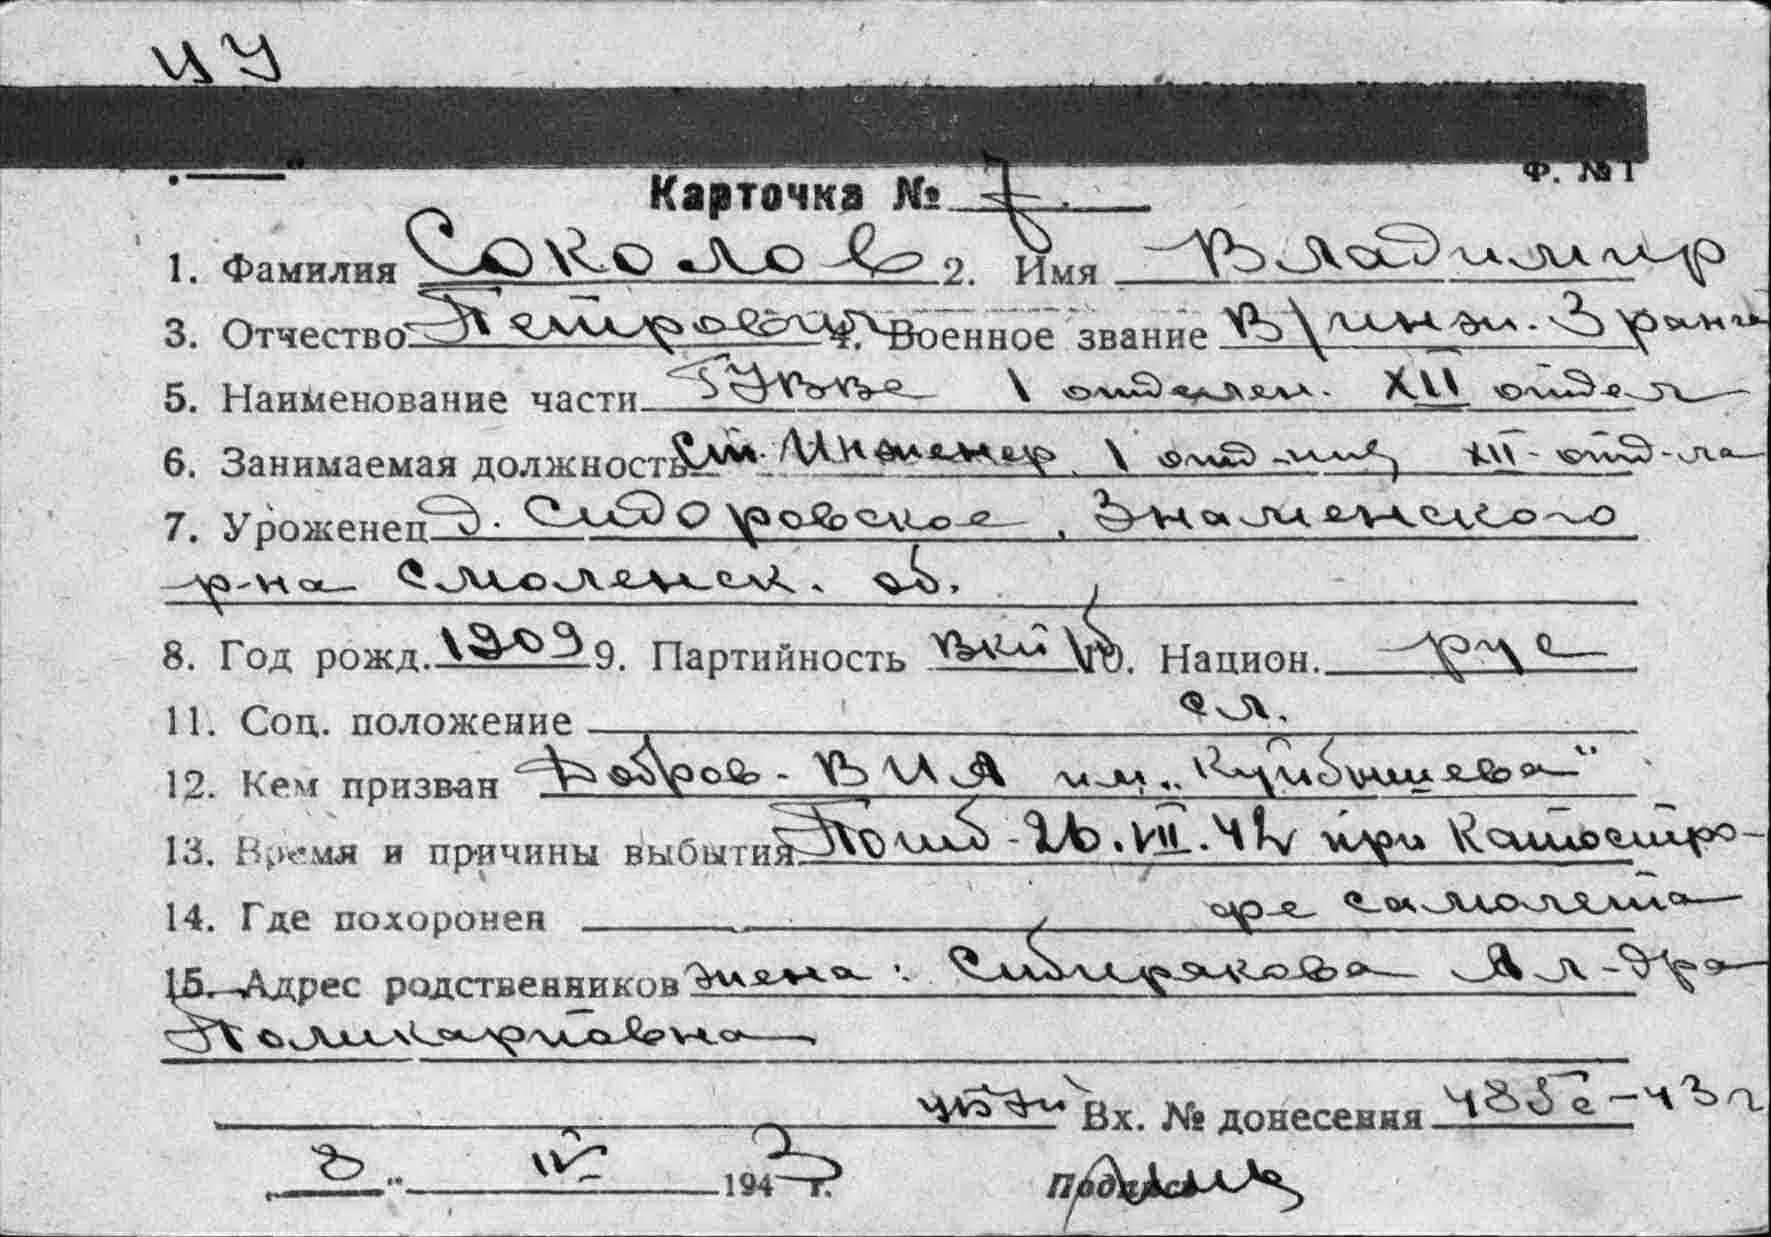 ЦУ
Ф. № 1
Карточка № 7.
1. Фамилия Соколов 2. Имя Владимир
3. Отчество Петрович 4. Военное звание В/инж. 3 ранга
5. Наименование части ГУВВС 1 отделен. XII отдел
6. Занимаемая должность Ст. Инженер 1 отд-ния XII-отд-ла
7. Уроженец д. Сидоровское, Знаменского
р-на Смоленск. об.
8. Год рожд. 1909 9. Партийность ВКП/б 10. Национ. рус
11. Соц. положение сл.
12. Кем призван Добров. - ВИА им. „Куйбышева"
13. Время и причины выбытия Погиб - 26.VII.42 при катостро-
14. Где похоронен фе самолета
15. Адрес родственников жена: Сибирякова Ал-дра
Поликарповна
Вх. № донесения 485с-43г
8 " IV 1943 г. Подпись